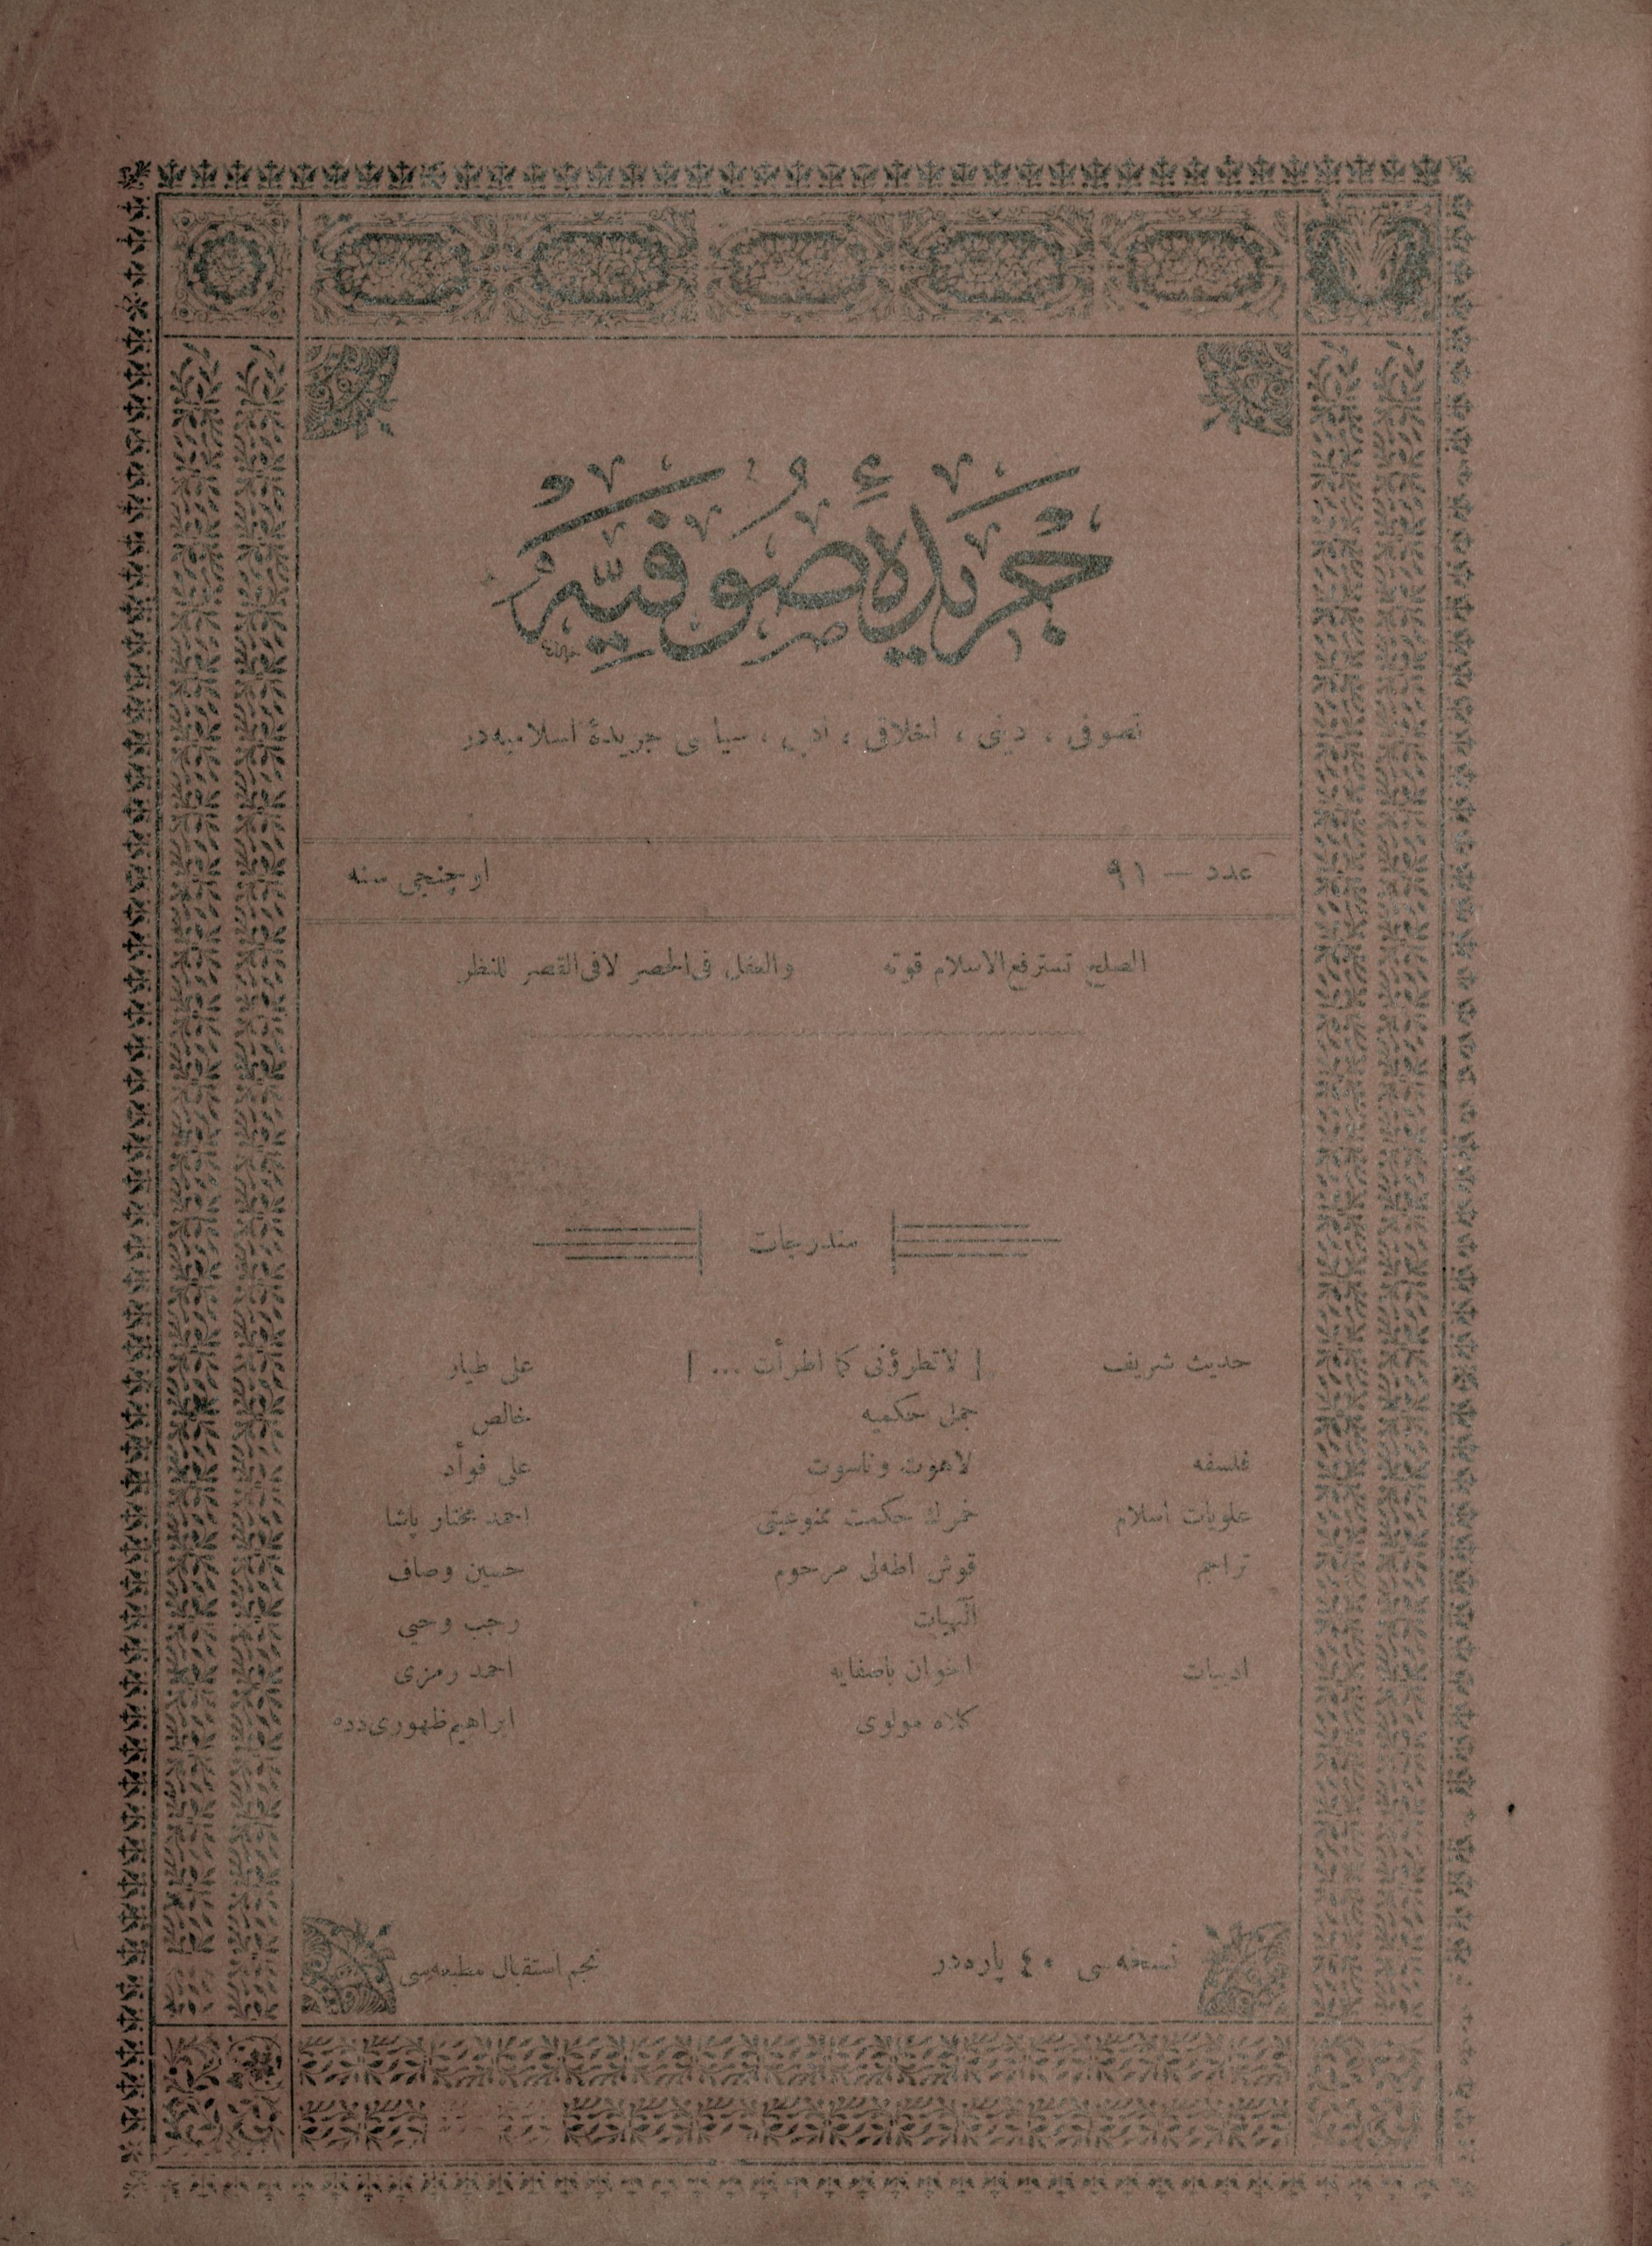 جريدۀ صوفيه
تصوفى ، دينى ، اخلاقى ، ادبى ، سياسى جريدۀ اسلاميه‌در
عدد — ٩١ اوچنجى سنه
الاسلام قوته والعقل فى الحصر لا فى القصر للنظر
مندرجات
حديث شريف [ لاتطرؤنى كما اطرأت ... ] على طيار
جمل حكميه خالص
فلسفه لاهوت و ناسوت على فوأد
علويات اسلام خمرك حكمت ممنوعيتى احمد مختار پاشا
تراجم قوش اطه‌لى مرحوم حسين وصاف
آلهيات رجب وحيى
ادبيات اخوان باصفايه احمد رمزى
كلاه مولوى ابراهيم ظهورى دده
نسخه‌سى ٤٠ پاره‌در نجم استقبال مطبعه‌سى